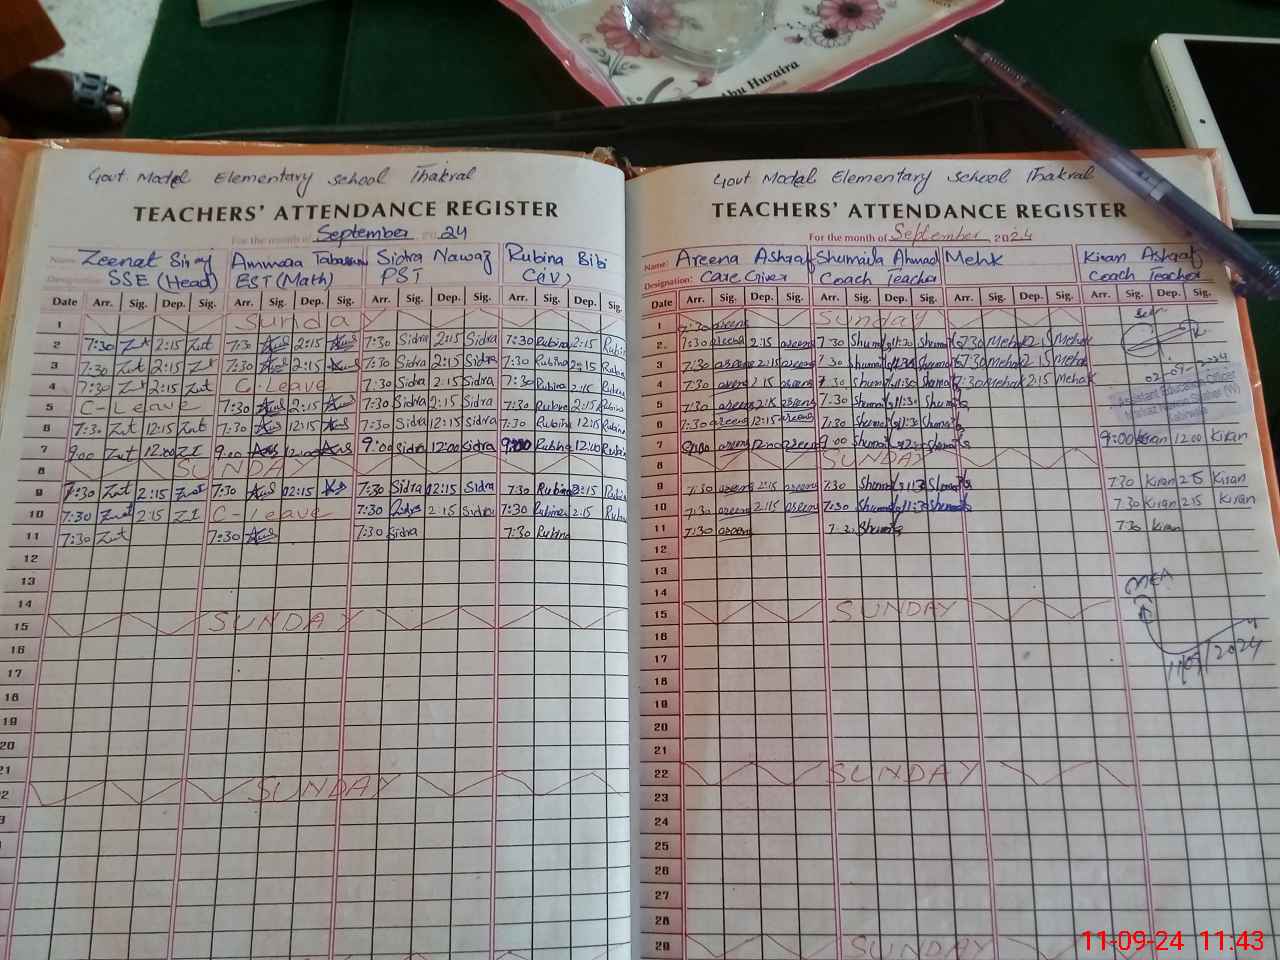 Abu Huraira
Govt Model Elementary School Thakral
TEACHERS' ATTENDANCE REGISTER
For the month of September 2024
Name: Zeenat Siraj Ammara Tabassum Sidra Nawaz Rubina Bibi
Designation: SSE (Head) EST (Math) PST (IV)
Date Arr. Sig. Dep. Sig. Arr. Sig. Dep. Sig. Arr. Sig. Dep. Sig. Arr. Sig. Dep. Sig.
1 Sunday
2 7:30 2:15 7:30 2:15 7:30 Sidra 2:15 Sidra 7:30 Rubina 2:15 Rubina
3 7:30 2:15 7:30 2:15 7:30 Sidra 2:15 Sidra 7:30 Rubina 2:15
4 7:30 2:15 C-Leave 7:30 Sidra 2:15 Sidra 7:30 Rubina 2:15
5 C-Leave 7:30 2:15 7:30 Sidra 2:15 Sidra 7:30 Rubina 2:15 Rubina
6 7:30 12:15 7:30 12:15 7:30 Sidra 12:15 Sidra 7:30 Rubina 12:15
7 9:00 12:00 9:00 12:00 9:00 Sidra 12:00 Sidra 9:00 Rubina 12:00
8 SUNDAY
9 7:30 2:15 7:30 02:15 7:30 Sidra 2:15 Sidra 7:30 Rubina 2:15
10 7:30 2:15 C-Leave 7:30 2:15 Sidra 7:30 Rubina 2:15
11 7:30 7:30 7:30 Sidra 7:30 Rubina
12
13
14
15 SUNDAY
16
17
18
19
20
21
22 SUNDAY
Govt Model Elementary School Thakral
TEACHERS' ATTENDANCE REGISTER
For the month of September 2024
Name: Areena Ashraf Shumaila Ahmad Mehk Kiran Ashraf
Designation: Care Giver Coach Teacher Coach Teacher
Date Arr. Sig. Dep. Sig. Arr. Sig. Dep. Sig. Arr. Sig. Dep. Sig. Arr. Sig. Dep. Sig.
1 7:30 areena Sunday
2 7:30 areena 2:15 areena 7:30 11:30 7:30 Mehak 2:15 Mehak
3 7:30 areena 2:15 areena 7:30 11:30 7:30 Mehak 2:15 Mehak
4 7:30 areena 2:15 areena 7:30 11:30 7:30 Mehak 2:15 Mehak
5 7:30 areena 2:15 areena 7:30 11:30
6 7:30 areena 12:15 areena 7:30 11:30
7 9:00 areena 12:00 areena 9:00 12:00 9:00 Kiran 12:00 Kiran
8 SUNDAY
9 7:30 areena 2:15 areena 7:30 11:30 7:30 Kiran 2:15 Kiran
10 7:30 areena 2:15 areena 7:30 11:30 7:30 Kiran 2:15 Kiran
11 7:30 areena 7:30 Kiran
12
13
14
15 SUNDAY
16
17
18
19
20
21
22 SUNDAY
23
24
25
26
27
28
29 SUNDAY
Assistant Education Officer
MEA
11/09/2024
11-09-24 11:43